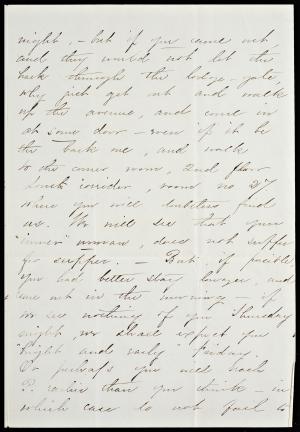 night, - but if you come out
and they would not let the
hack through the lodge-gate
why just get out and walk
up the avenue, and come in
at some door - even if it be
the back one, and walk
to the corner room, 2nd floor
South corridor, room no 27
where you will doubtless find
us. We will see that your
"inner" woman, does not suffer
for supper. - But, if possible,
you had better stay longer, and
come out in the morning - if
we see nothing of you Thursday
night, we shall expect you
"bright and early" Friday.
Or perhaps you will reach
P. earlier than you think - in
which case do not fail to